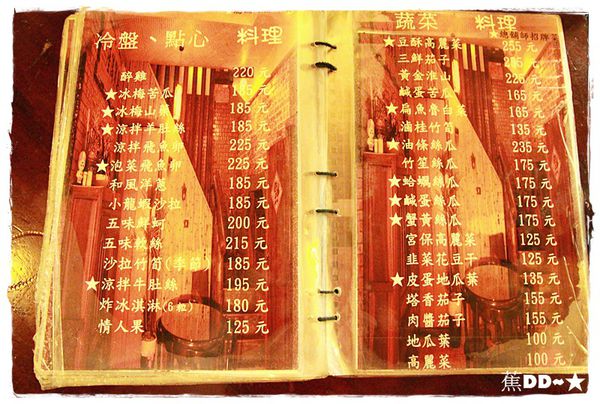 冷盤、點心 料理
醉雞 220 元
★冰梅苦瓜 185 元
★冰梅山藥 185 元
★涼拌羊肚絲 185 元
涼拌飛魚卵 225 元
★泡菜飛魚卵 225 元
和風洋蔥 185 元
小龍蝦沙拉 185 元
五味鮮蚵 200 元
五味軟絲 215 元
沙拉竹筍(季節) 185 元
★涼拌牛肚絲 195 元
炸冰淇淋(6粒) 180 元
情人果 125 元
蔬菜 料理
招牌菜
★豆酥高麗菜 255 元
三鮮茄子
黃金淮山 225 元
鹹蛋苦瓜 165 元
★扁魚魯白菜 165 元
滷桂竹筍 135 元
★油條絲瓜 235 元
竹笙絲瓜 175 元
★蛤蠣絲瓜 175 元
★鹹蛋絲瓜 175 元
★蟹黃絲瓜 175 元
宮保高麗菜 125 元
韭菜花豆干 125 元
★皮蛋地瓜葉 135 元
塔香茄子 155 元
肉醬茄子 155 元
地瓜葉 100 元
高麗菜 100 元
蕉DD~★